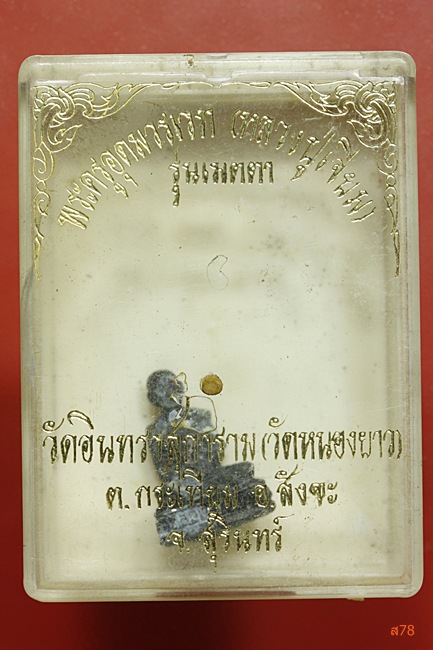 พระครูอุดมวรเวท (หลวงปู่เจียม)
รุ่นเมตตา
วัดอินทราสุการาม (วัดหนองยาว)
ต. กระเทียม อ. สังขะ
จ. สุรินทร์
ส78